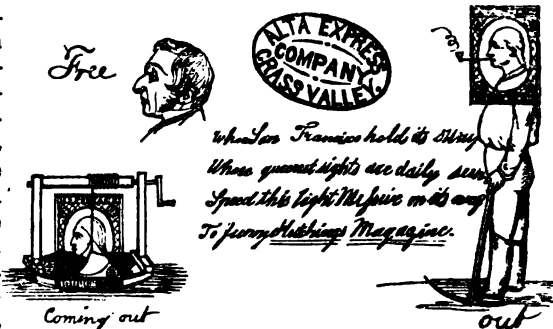 Free
ALTA EXPRESS
COMPANY
GRASS VALLEY.
When San Francisco hold its sway
Whose queerest sights are daily seen
Speed this light Missive on its way
To funny Hutchings Magazine.
Coming out
out